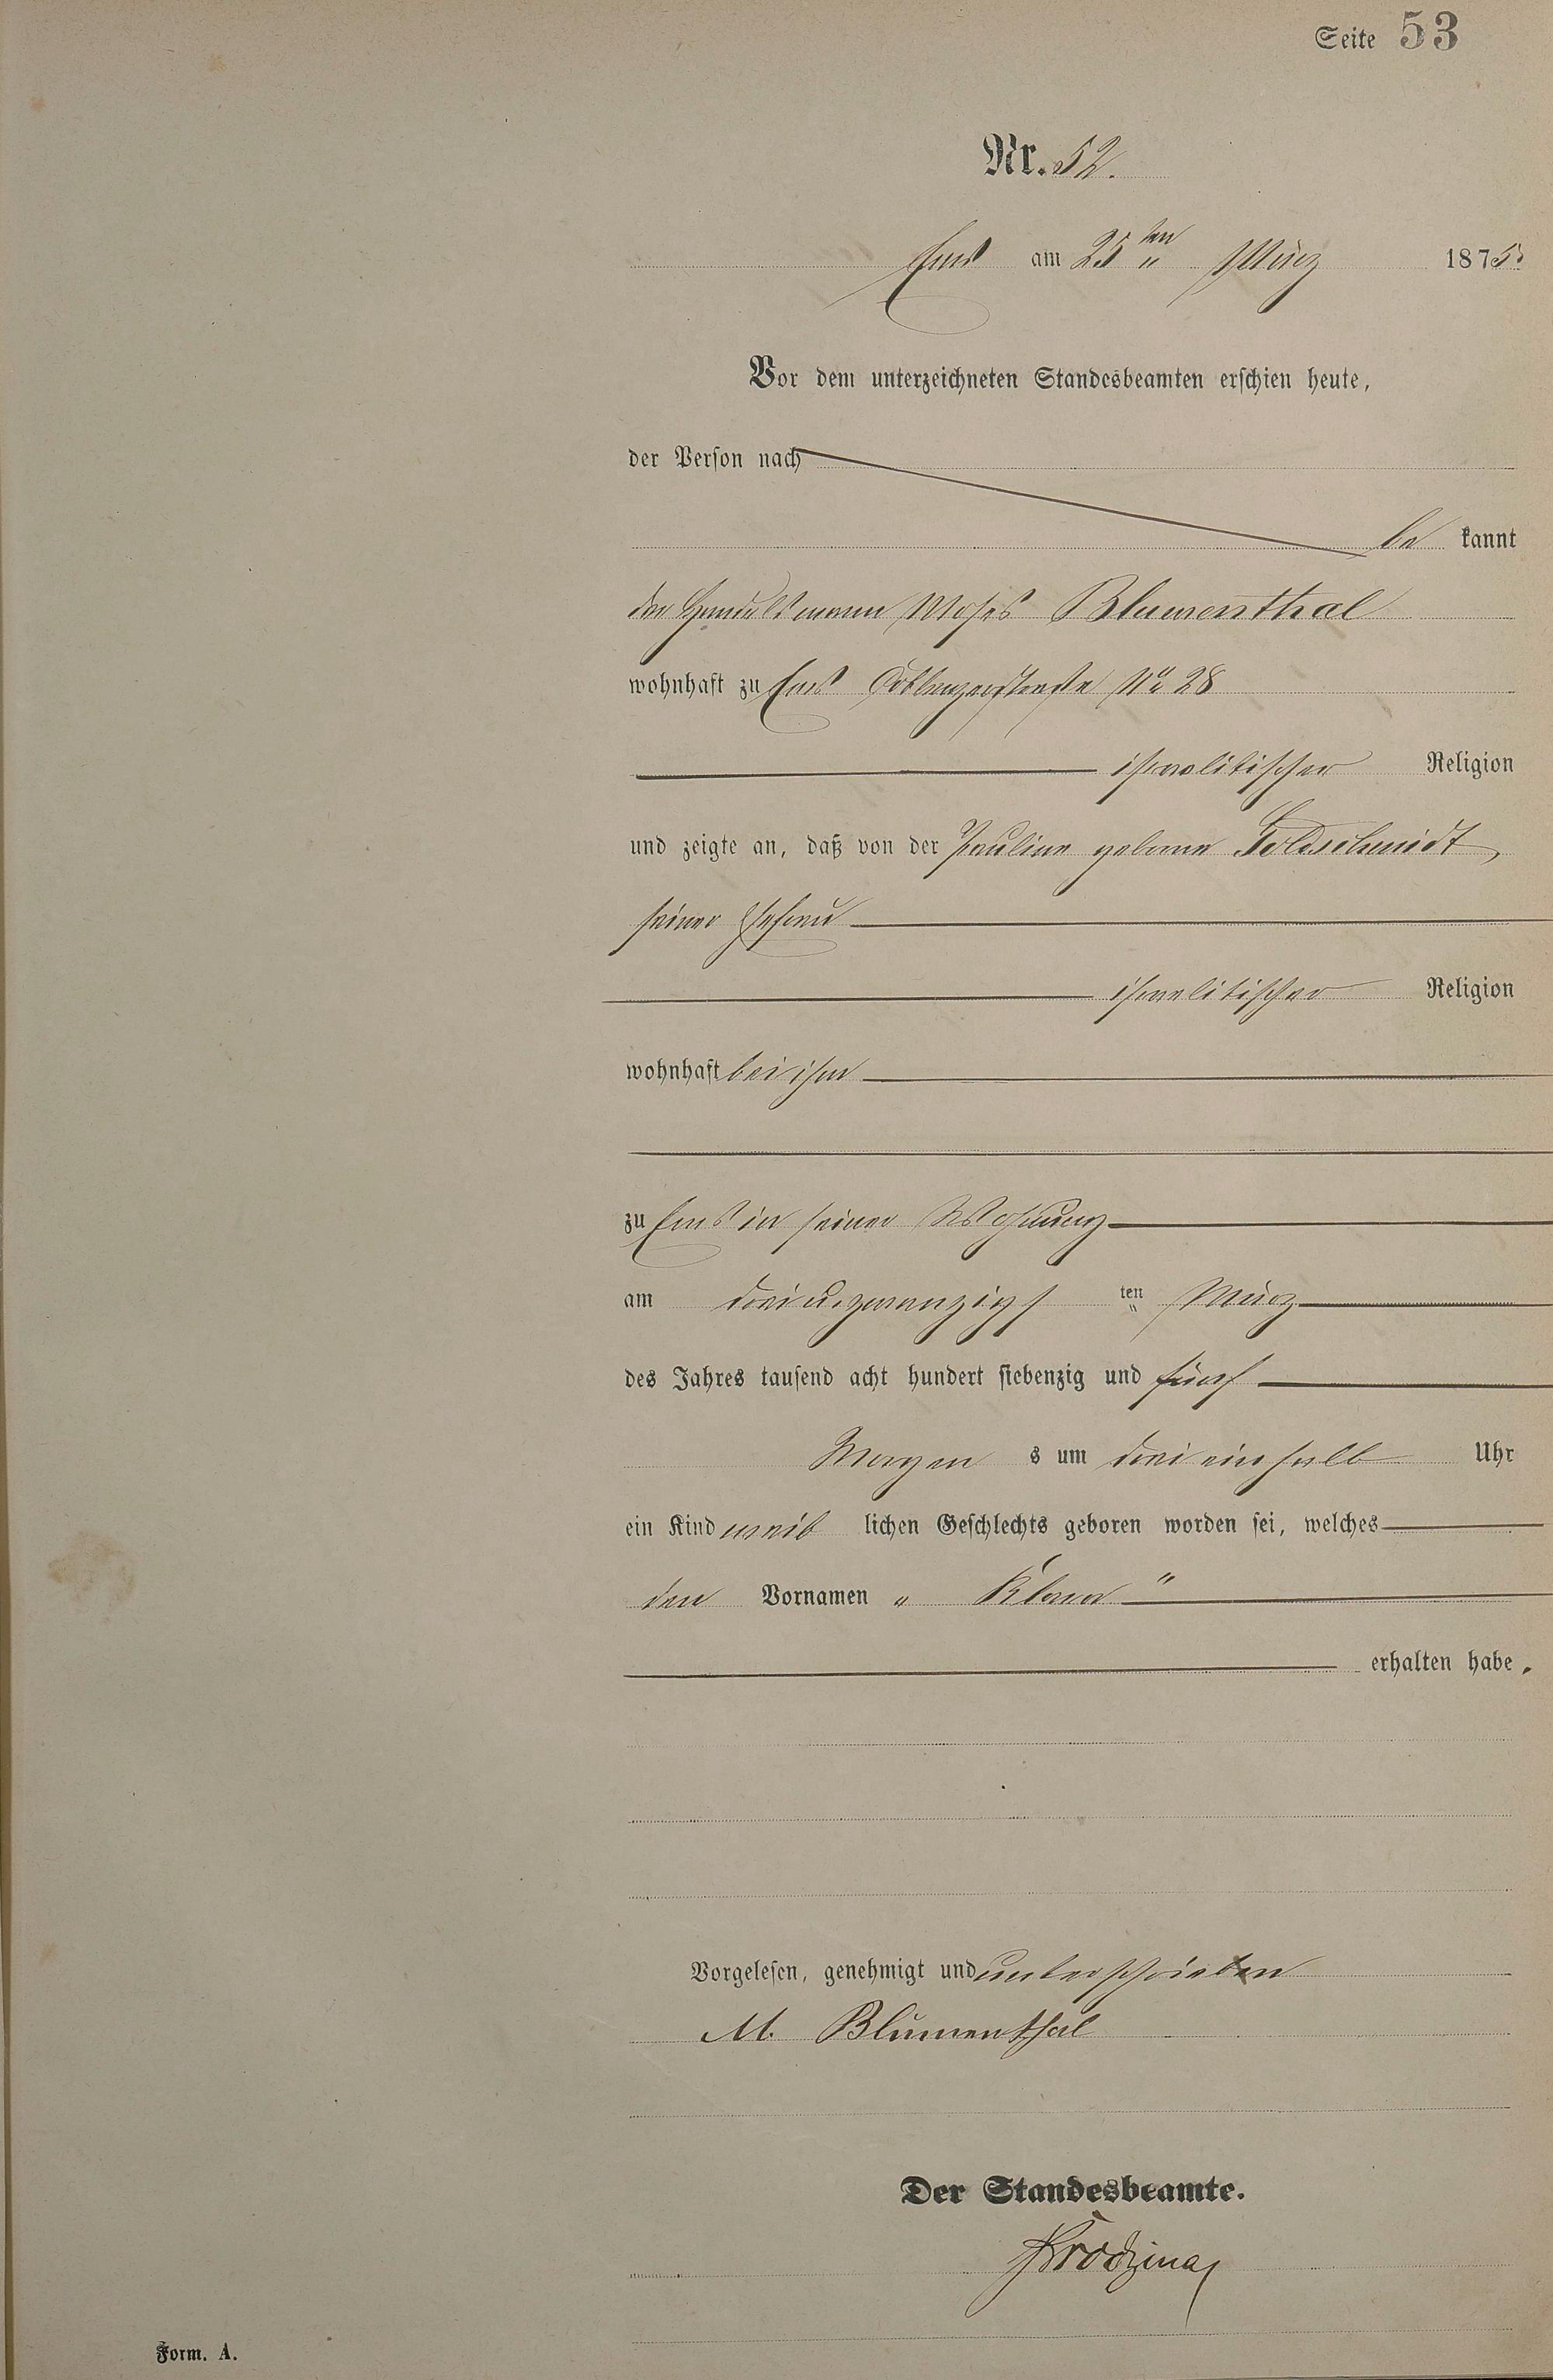 Seite 53
Nr. 52.
Ems am 25ten März 1875.
Vor dem unterzeichneten Standesbeamten erschien heute,
der Person nach
be kannt
der Handelsmann Moses Blumenthal
wohnhaft zu Ems Coblenzerstraße No 28
israelitischer Religion
und zeigte an, daß von der Pauline geborne Goldschmidt,
seiner Ehefrau
israelitischer Religion
wohnhaft bei ihm
zu Ems in seiner Wohnung
am drei u. zwanzigs ten März
des Jahres tausend acht hundert siebenzig und fünf
Morgen s um drei einhalb Uhr
ein Kind weib lichen Geschlechts geboren worden sei, welches
den Vornamen „ Klara "
erhalten habe.
Vorgelesen, genehmigt und unterschrieben
M. Blumenthal
Der Standesbeamte.
Form. A.